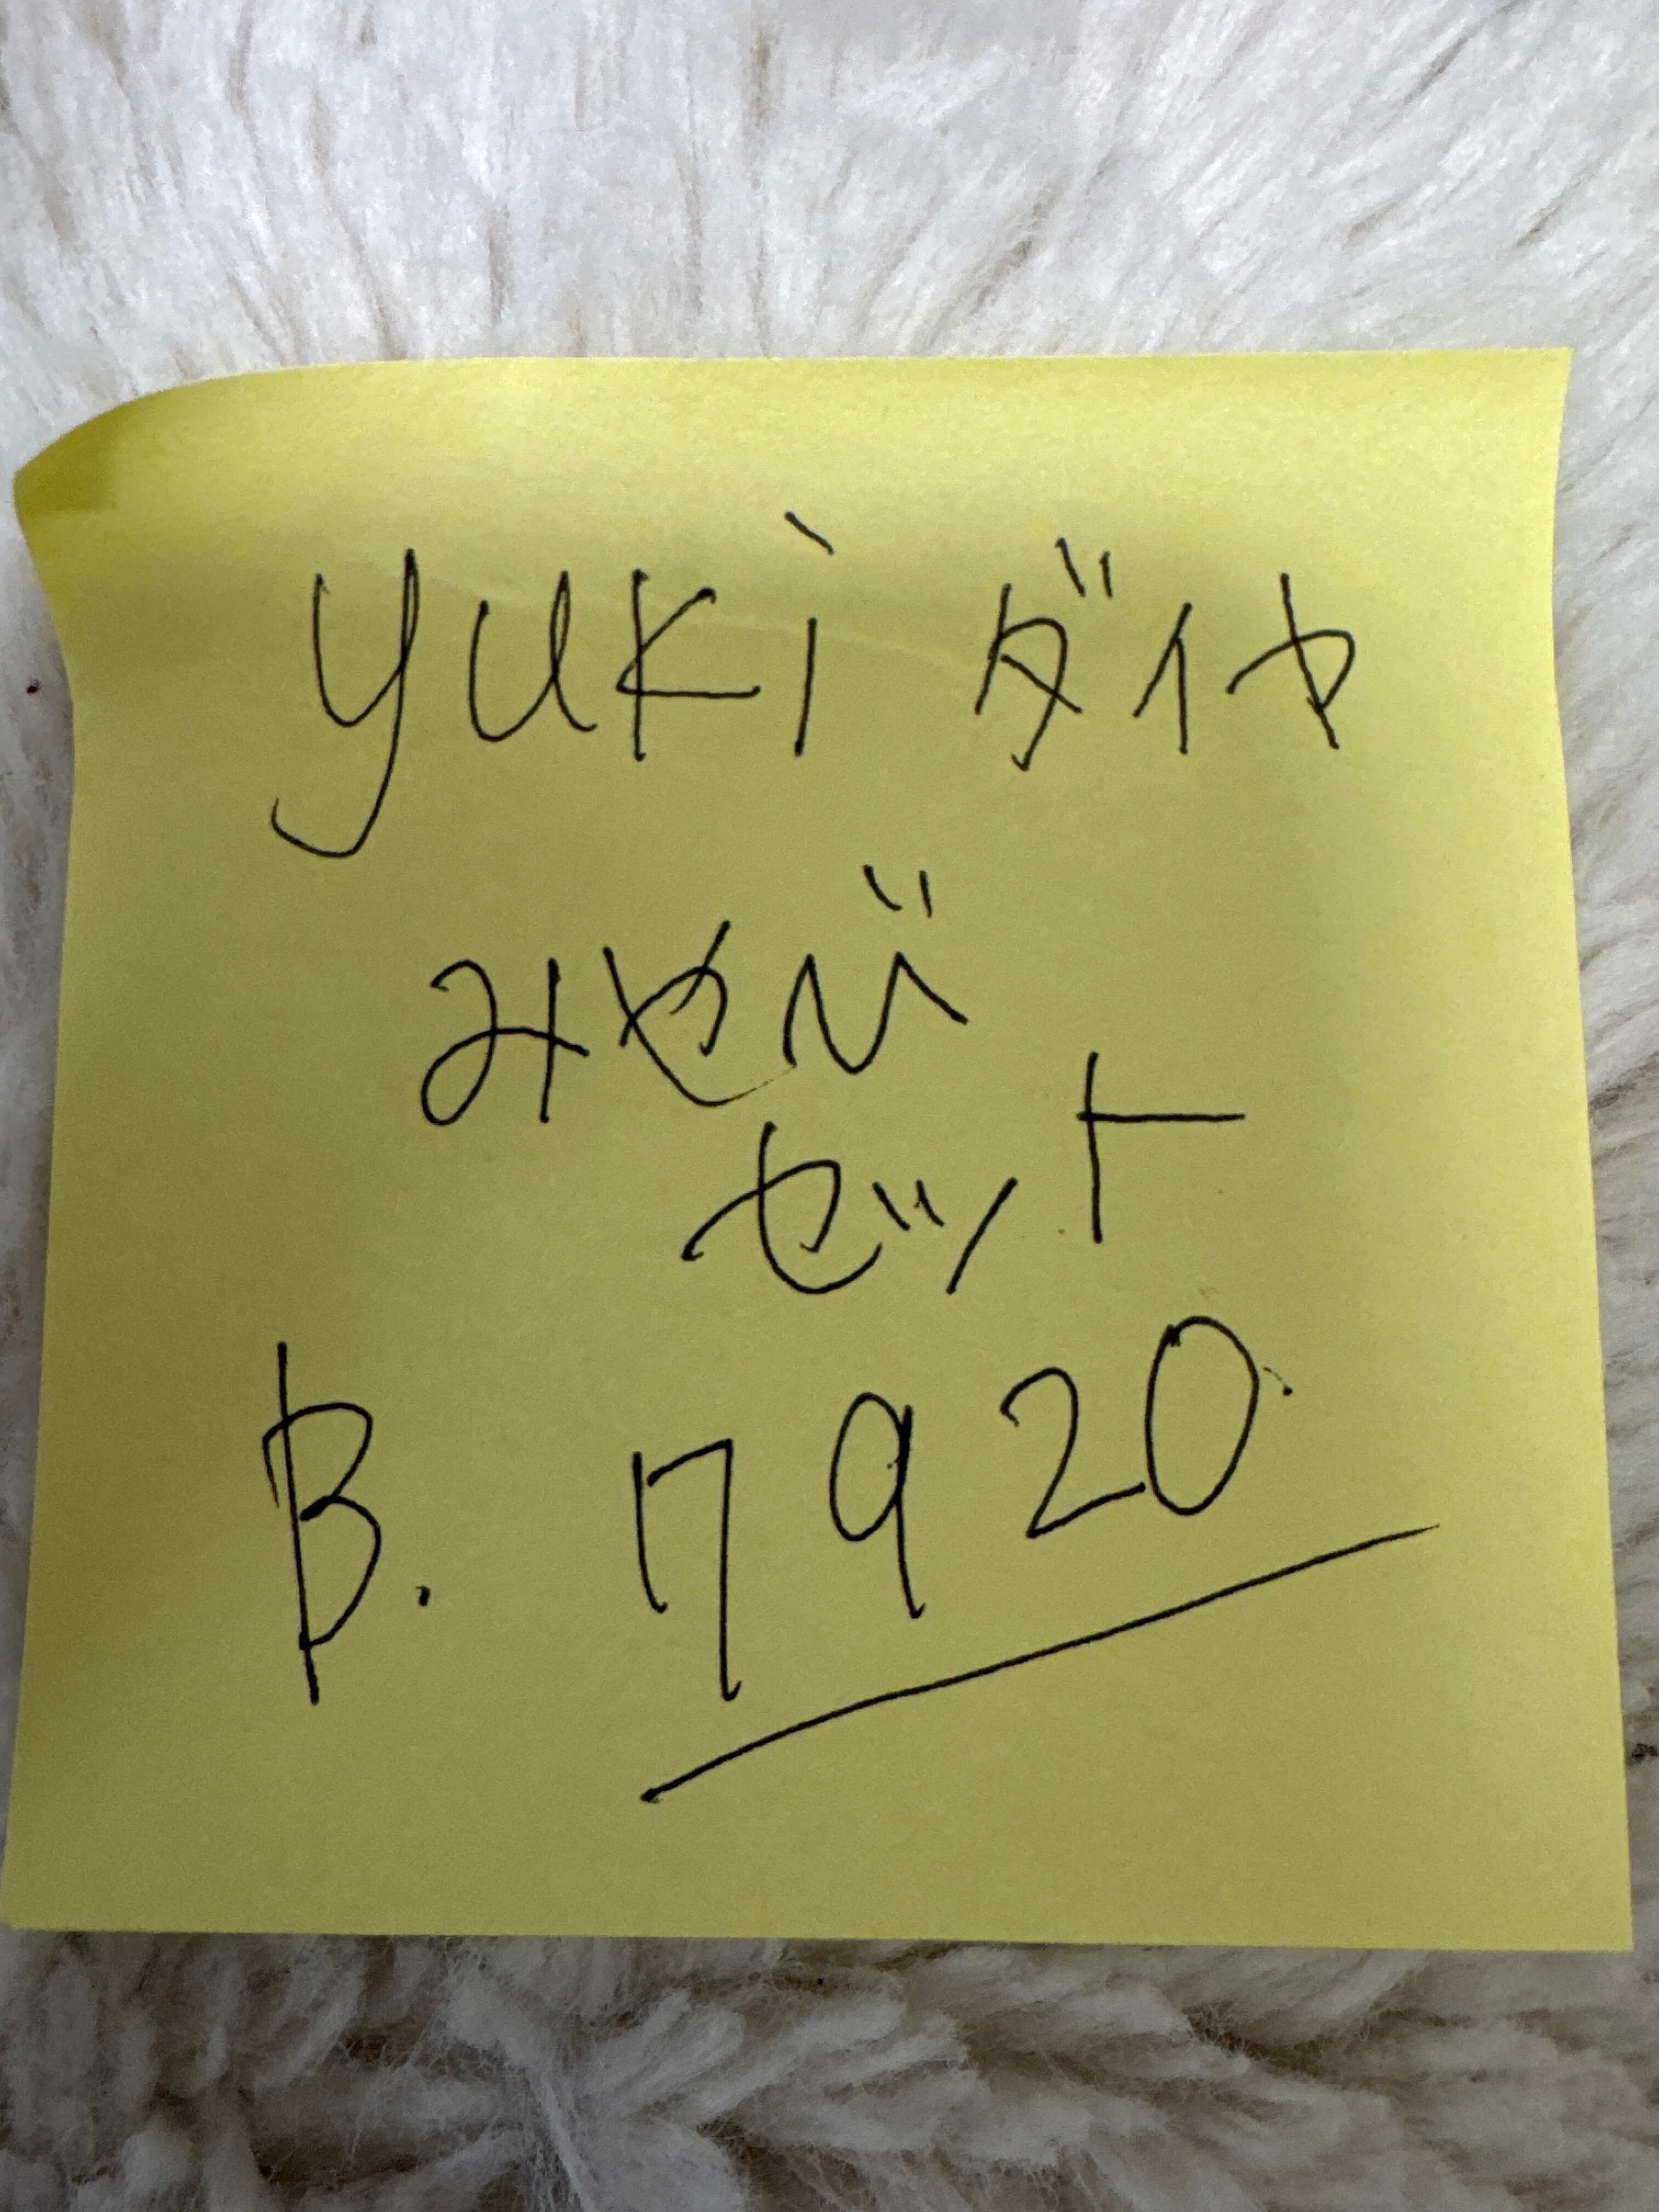 yuki ダイヤ
みやび
セット
B. 7920